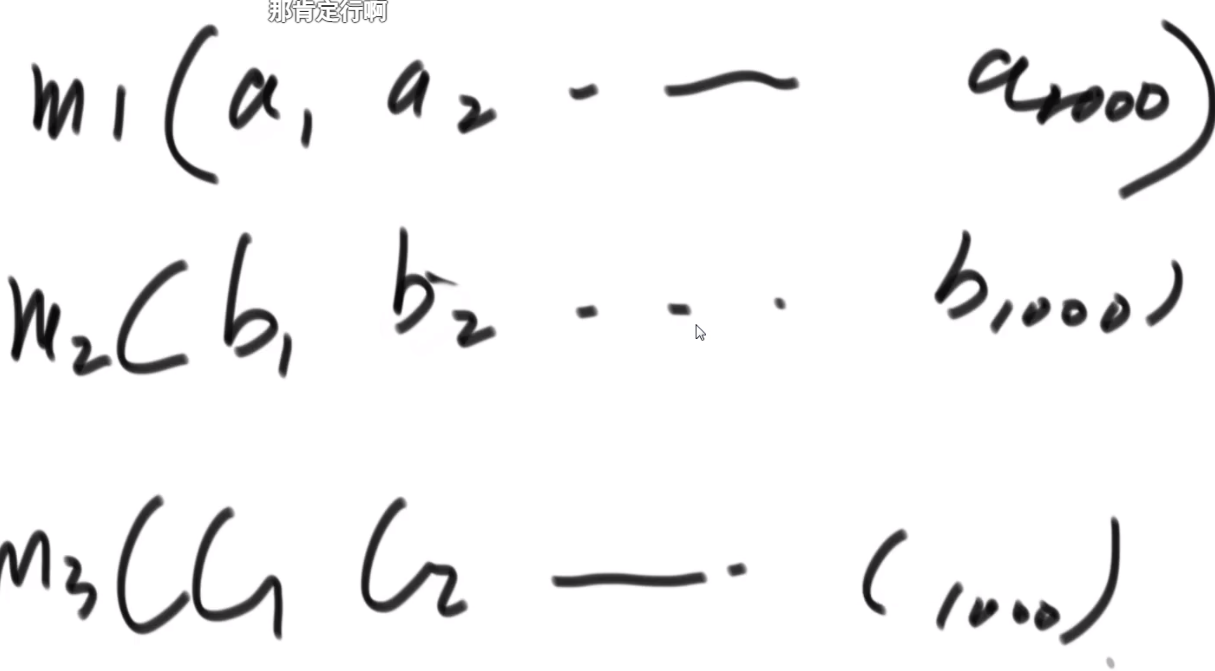 那肯定行啊
m1(a1 a2 - — a1000)
m2(b1 b2 - - · b1000)
m3(C1 C2 — · C1000)